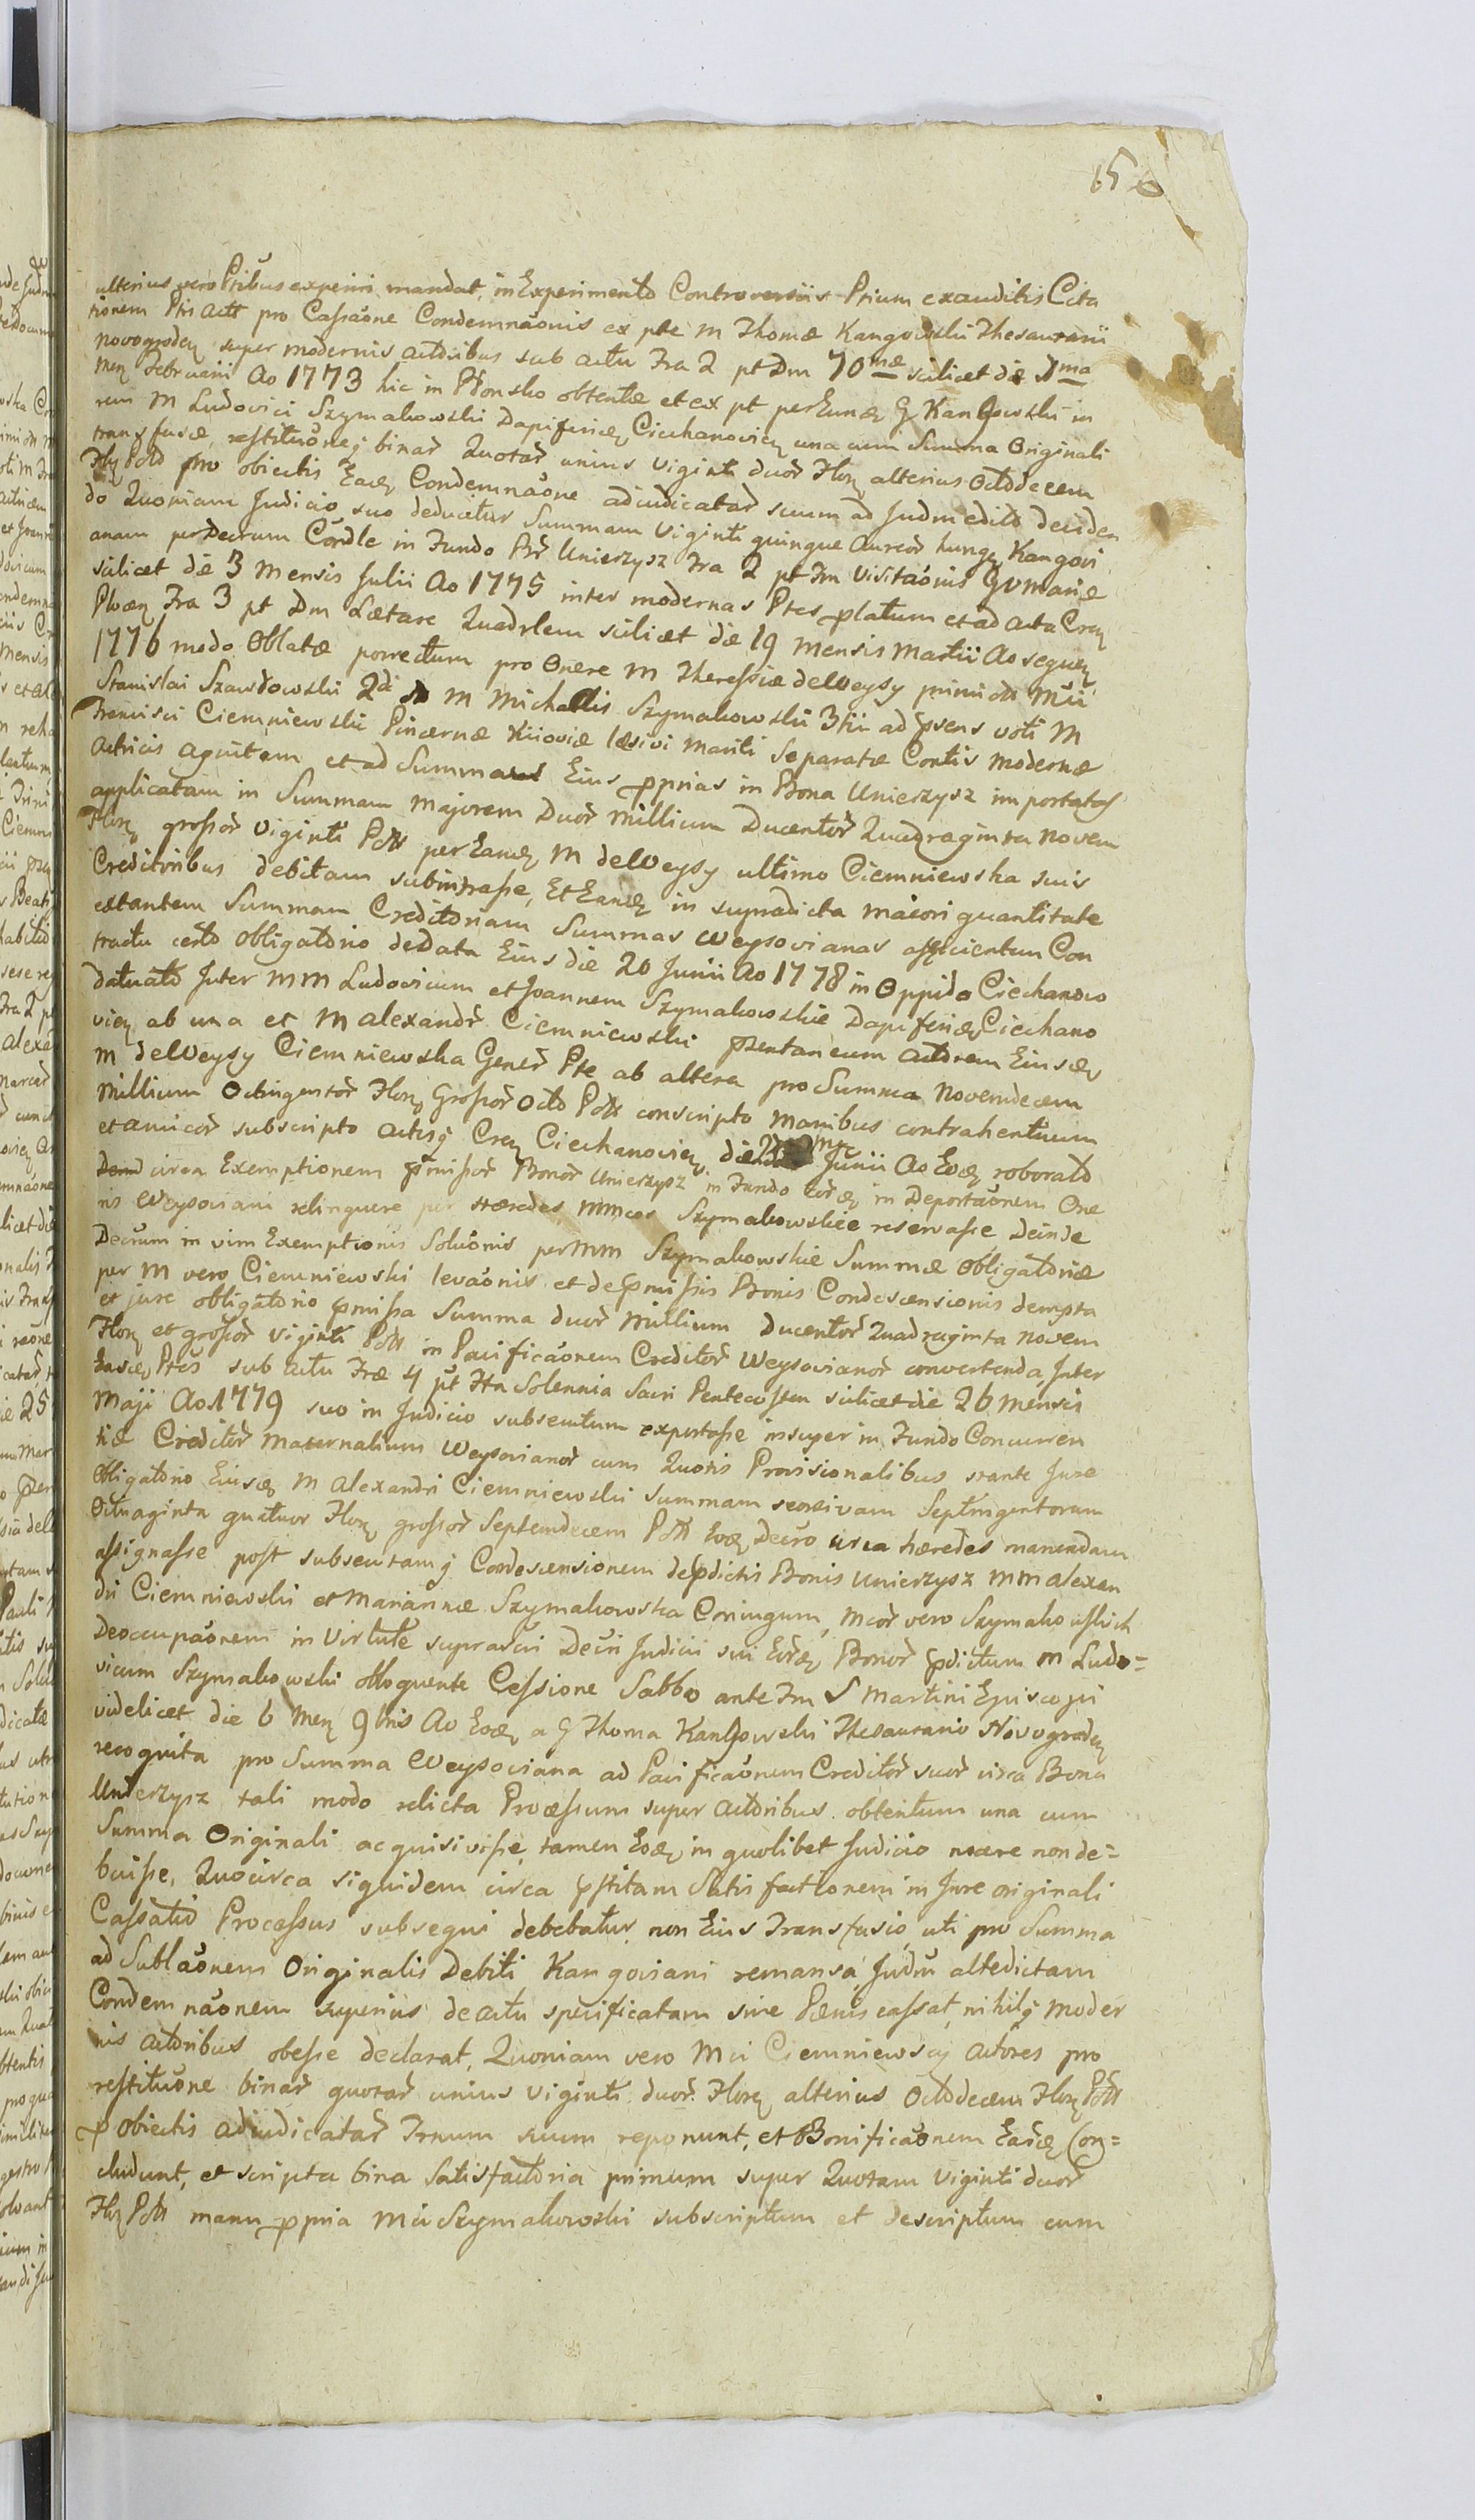 650
ulterius vero Ptibus experiri mandat, in Experimento Controversiis Ptium exauditis Cita
tionem Ptis Actt pro Cassaõne Condemnaõnis ex pte M Thomæ Kangowski Thesaurarii
Novogroden super modernis Actoribus sub actu Fra 2 pt Dm 70mæ scilicet die 1ma
Men Februarii Ao 1773 hic in Płonsko obtentæ et ex pt per Eunꝗ G Kangowski in
rem M Ludovici Szymakowski Dapiferiꝗ Ciechanovien una cum Summa Originali
transfusæ, restituõneq binar Quotar unius Viginti duor Flor alterius Octodecem
Flor Poło pro obiectis Eaꝗ Condemnaõne adiudicatar suum ad Judm edito deciden
do Quoniam Judicio suo deducitur Summam Viginti quinque Aureor hung Kangovi
anam per Decrum Cordle in Fundo Br Unierzysz Fra 2 pt Fm Visitaõnis BVMariæ
scilicet die 3 Mensis Julii Ao 1775 inter modernas Ptes platum et ad Acta Cren
Plocen Fra 3 pt Dm Lætare Quadrlem scilicet die 19 Mensis Martii Ao sequen
1776 modo Oblatæ porrectum pro Onere M Theressiæ de Weysy primi M̃ci
Stanislai Szawłowski 2di M Michaelis Szymakowski 3tii ad p̃sens voti M
Francisci Ciemniewski Pincernæ Kiioviæ læsivi Mariti Separatæ Contis Modernæ
Actricis agnitam et ad Summas Eius p̃prias in Bona Unierzysz importatas
applicatam in Summam Majorem Duor Millium Ducentor Quadraginta Novem
Flor grossor Viginti Poll per Eamꝗ M de Weysy ultimo Ciemniewska suis
Creditoribus debitam subintrasse, Et Eamꝗ in supradicta Maiori quantitate
extantem Summam Creditoriam Summas Weysovianas afficientem Con
tractu certo Obligatorio de Data Eius die 20 Junii Ao 1778 in Oppido Ciechanow
datuato Inter MM Ludovicum et Joannem Szymakowskie Dapiferiꝗ Ciechano
vien ab una et M Alexandr Ciemniewski p̃sentaneum Actorem Eiusꝗ
M de Weysy Ciemniewska Gener Pte ab altera pro Summa Novemdecem
Millium Octingentor Flor Grossor Octo Poll conscripto Manibus contrahentium
et amicor subscripto Actisq Cren Ciechanovien die Junii Ao Eoꝗ roborato
circa Exemptionem p̃missor Bonor Unierzysz in Fundo Eorꝗ in Deportaõnem One
ris Weysoviani relinquere per Hæredes MMcos Szymakowskie reservasse Deinde
Decrum in vim Exemptionis Soluõnis per MM Szymakowskie Summæ Obligatoriæ
per M vero Ciemniewski levaõnis et de p̃missis Bonis Condescensionis dempta
et jure obligatorio p̃missa Summa duor Millium Ducentor Quadraginta Novem
Flor et grossor Viginti Poll in Pacificaõnem Creditor Weysovianor convertenda, Inter
Easꝗ Ptes sub Actu Fræ 4 pt Fta Solennia Sacri Pentecosten scilicet die 26 Mensis
Maji Ao 1779 suo in Judicio subsecutum exportasse insuper in Fundo Concurren
tiæ Creditor Maternalium Weysovianor cum Quotis Provisionalibus stante Jure
Obligatorio Eiusꝗ M Alexandri Ciemniewski Summam recesivam Septingentorum
Octuaginta quatuor Flor grossor Septemdecem Poll Eoꝗ Decro circa hæredes manendam
assignasse post subsecutamq Condescensionem de p̃dictis Bonis Unierzysz MM Alexan
dri Ciemniewski et Mariannæ Szymakowska Coniugum, Mcor vero Szymakowskich
Deoccupaõnem in Virtute suprascri Decri Judicii sui Eorꝗ Bonor p̃dictum M Ludo=
vicum Szymakowski obloquente Cessione Sabbo ante Fm S Martini Episcopi
videlicet die 6 Men 9bris Ao Eoꝗ a G Thoma Kangowski Thesaurario Novogroden
recognita pro Summa Weysoviana ad Pacificaõnem Creditor suor circa Bona
Unierzysz tali modo relicta Processum super Actoribus obtentum una cum
Summa Originali acquisivisse, tamen Eoꝗ in quolibet Judicio nocere non de=
buisse, Quocirca siquidem circa p̃stitam Satisfactionem in Jure originali
Cassatio Processus subsequi debebatur, non Eius Transfusio, uti pro Summa
ad Sublaõnem Originalis Debiti Kangoviani remansa, Judm altedictam
Condemnaõnem superius de actu specificatam sine Pænis cassat, nihilq Moder
nis Actoribus obesse declarat, Quoniam vero Mci Ciemniewscy Actores pro
restituõne binar quotar unius Viginti duor Flor alterius Octodecem Flor Poll
p obiectis adiudicatar Frnum suum reponunt, et Bonificaõnem Earꝗ Con=
cludunt, et scripta bina Satisfactoria primum super Quotam Viginti duor
Flor Poll manu p̃pria Mci Szymakowski subscriptum et descriptum cum